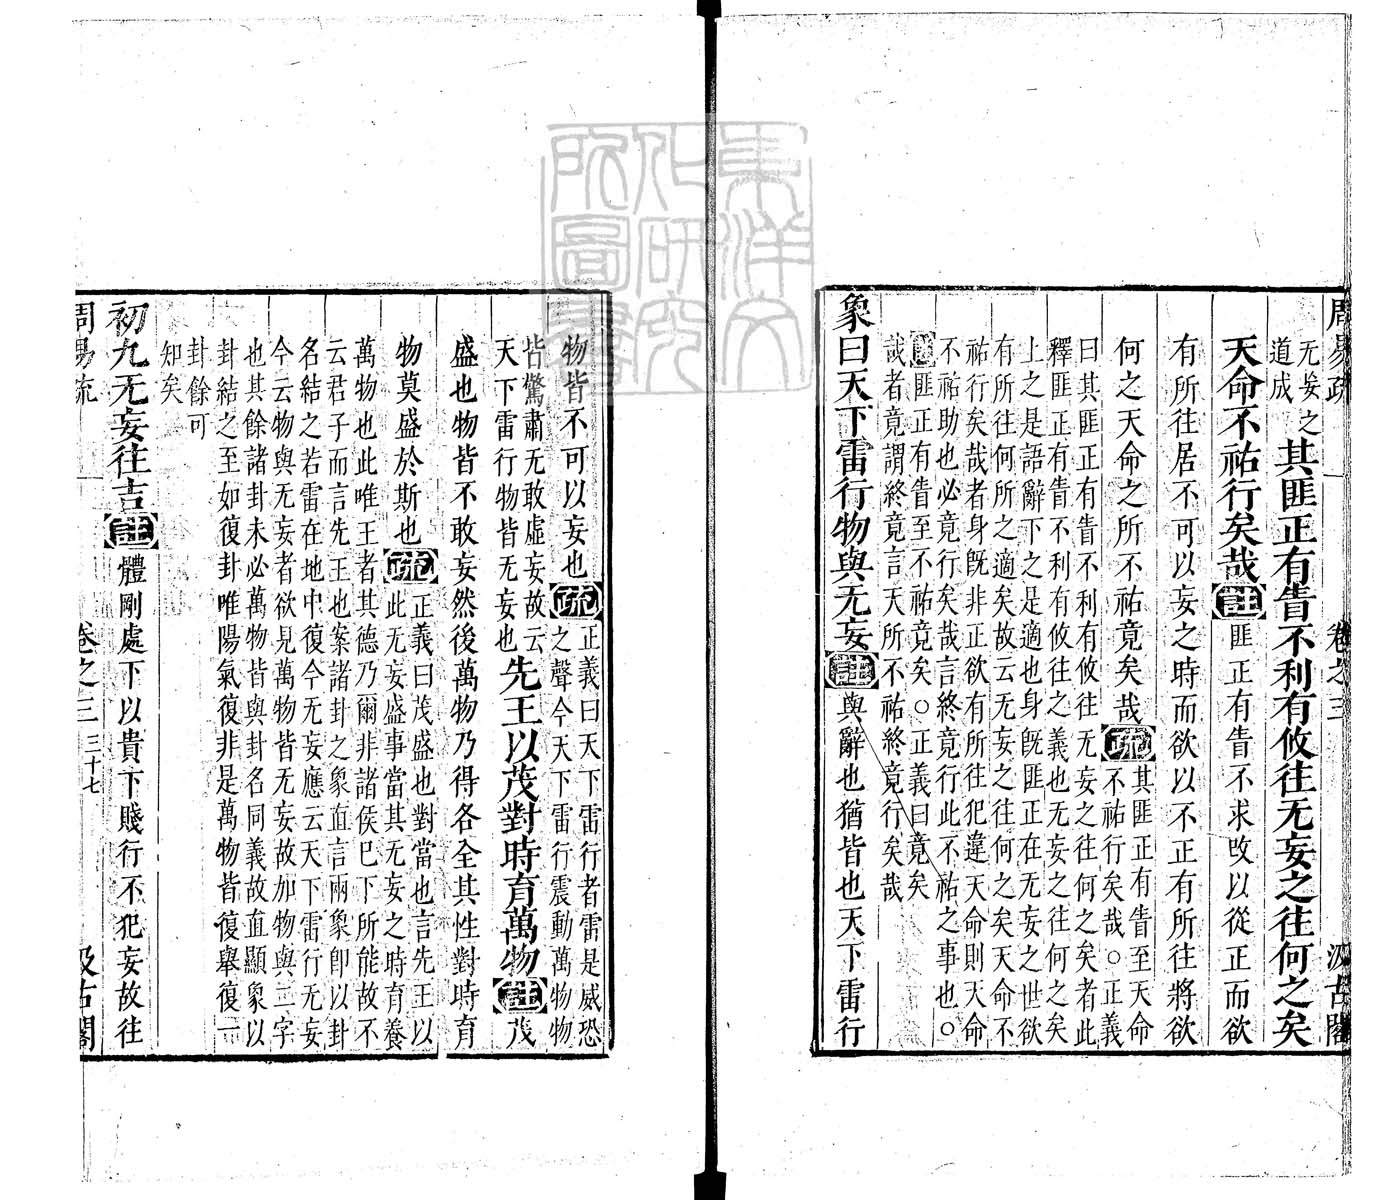 周易疏 卷之三 汲古閣
无妄之
道成
其匪正有眚不利有攸往无妄之往何之矣
天命不祐行矣哉註匪正有眚不求攺以從正而欲
有所往居不可以妄之時而欲以不正有所往將欲
何之天命之所不祐竟矣哉疏
其匪正有眚至天命
不祐行矣哉○正義
曰其匪正有眚不利有攸往无妄之往何之矣者此
釋匪正有眚不利有攸往之義也无妄之往何之矣
上之是語辭下之是適也身旣匪正在无妄之世欲
有所往何所之適矣故云无妄之往何之矣天命不
祐行矣哉者身旣非正欲有所往犯違天命則天命
不祐助也必竟行矣哉言終竟行此不祐之事也○
註匪正有眚至不祐竟矣○正義曰竟矣
哉者竟謂終竟言天所不祐終竟行矣哉
象曰天下雷行物與无妄註與辭也猶皆也天下雷行
物皆不可以妄也疏
正義曰天下雷行者雷是威恐
之聲今天下雷行震動萬物物
皆驚肅无敢虛妄故云
天下雷行物皆无妄也
先王以茂對時育萬物註茂
盛也物皆不敢妄然後萬物乃得各全其性對時育
物莫盛於斯也疏
正義曰茂盛也對當也言先王以
此无妄盛事當其无妄之時育養
萬物也此唯王者其德乃爾非諸侯巳下所能故不
云君子而言先王也案諸卦之象直言兩象卽以卦
名結之若雷在地中復今无妄應云天下雷行无妄
今云物與无妄者欲見萬物皆无妄故加物與二字
也其餘諸卦未必萬物皆與卦名同義故直顯象以
卦結之至如復卦唯陽氣復非是萬物皆復舉復一
卦餘可
知矣
初九无妄往吉註體剛處下以貴下賤行不犯妄故往
周易疏 卷之三 三十七 汲古閣
東洋文
化研究
所圖書